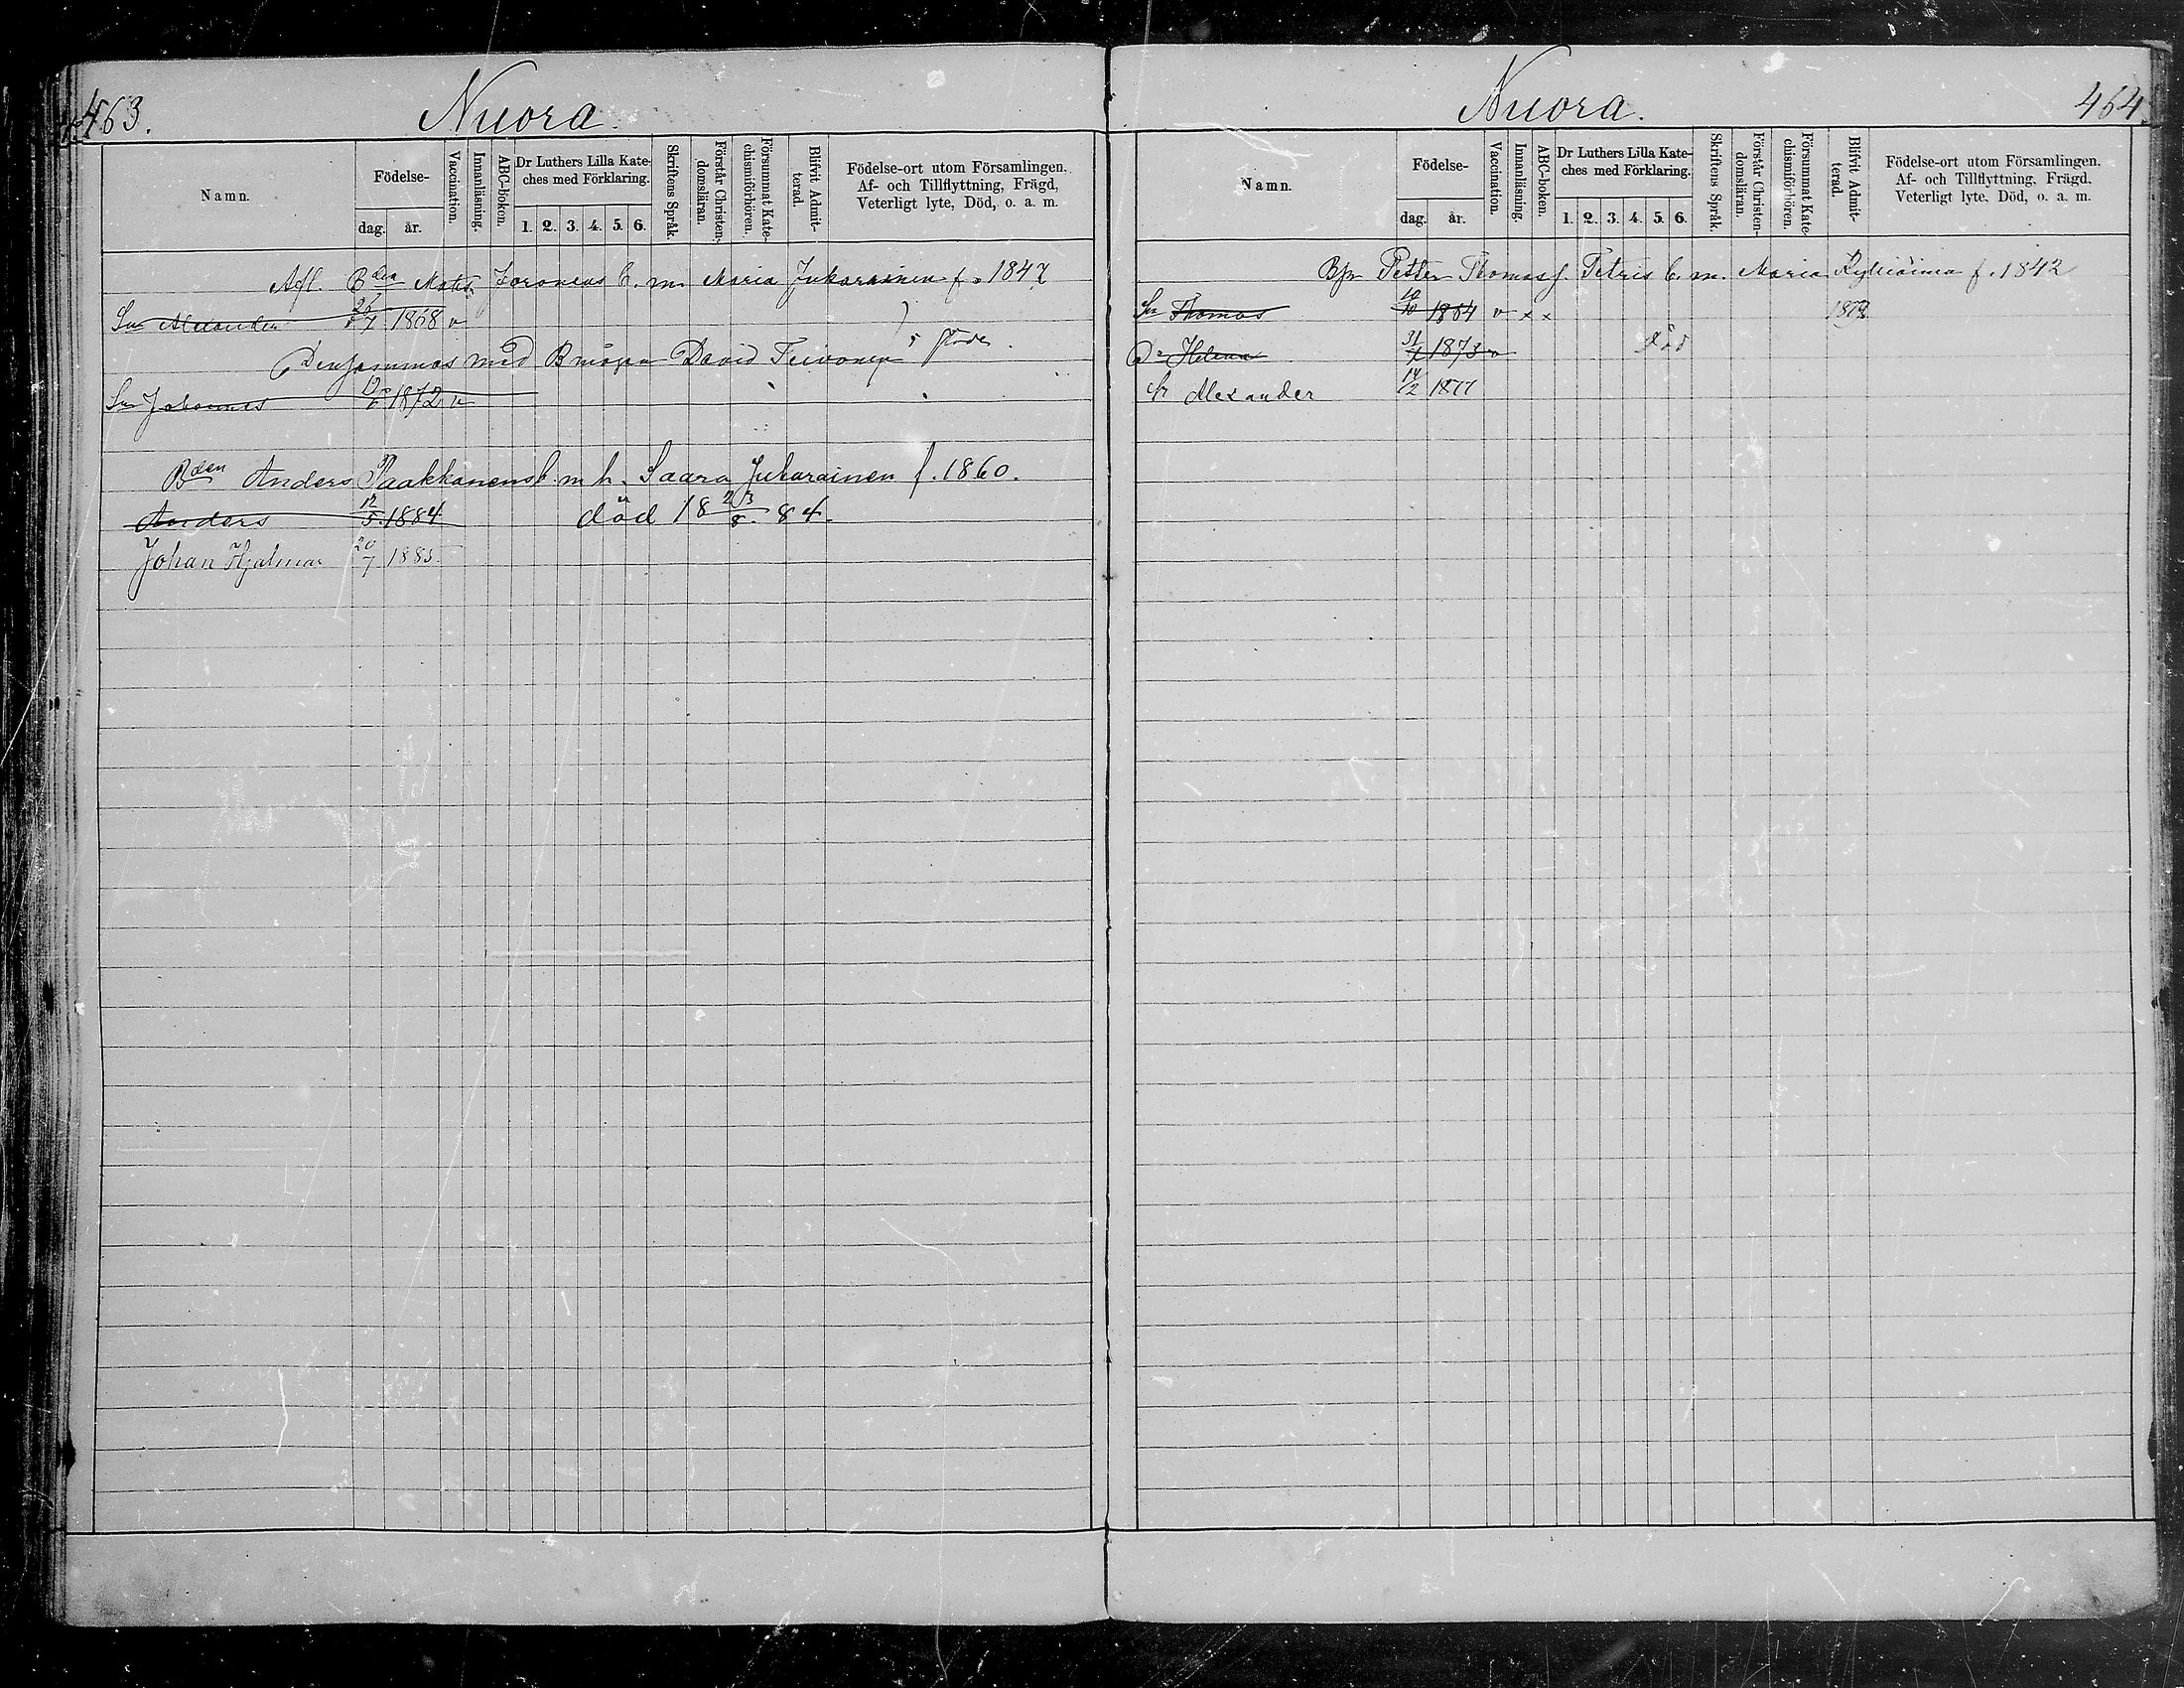 463.
Nuora.
Namn.
Födelse-
dag.
år.
Vaccination.
Innanläsning.
ABC-boken.
Dr Luthers Lilla Kate-
ches med Förklaring.
1. 2. 3. 4. 5. 6.
Skriftens Språk.
Förstår Christen-
domsläran.
Försummat Kate-
chismiförhören.
Blifvit Admit-
terad.
Födelse-ort utom Församlingen.
Af- och Tillflyttning, Frägd,
Veterligt lyte, Död, o. a. m.
Afl. Bden Mats b. m. Maria Jukarainen f. 1847
Sn Alexander 26/7 1868 v
Densammas med David Teivonen
Sn Johannes 1872 v
Bden Anders Paakkanens b. m. h. Saara Jukarainen f. 1860.
Anders 12/5 1884 död 18 23/8. 84.
Johan Hjalmar 20/7 1885.
Nuora.
464.
Namn.
Födelse-
dag.
år.
Vaccination.
Innanläsning.
ABC-boken.
Dr Luthers Lilla Kate-
ches med Förklaring.
1. 2. 3. 4. 5. 6.
Skriftens Språk.
Förstår Christen-
domsläran.
Försummat Kate-
chismiförhören.
Blifvit Admit-
terad.
Födelse-ort utom Församlingen.
Af- och Tillflyttning, Frägd,
Veterligt lyte, Död, o. a. m.
Petter Thomasf. Petris b. m. Maria f. 1842
Sn Thomas 10/10 1864 v x x
Dr Helena 1873 v död
Sn Alexander 14/2 1877